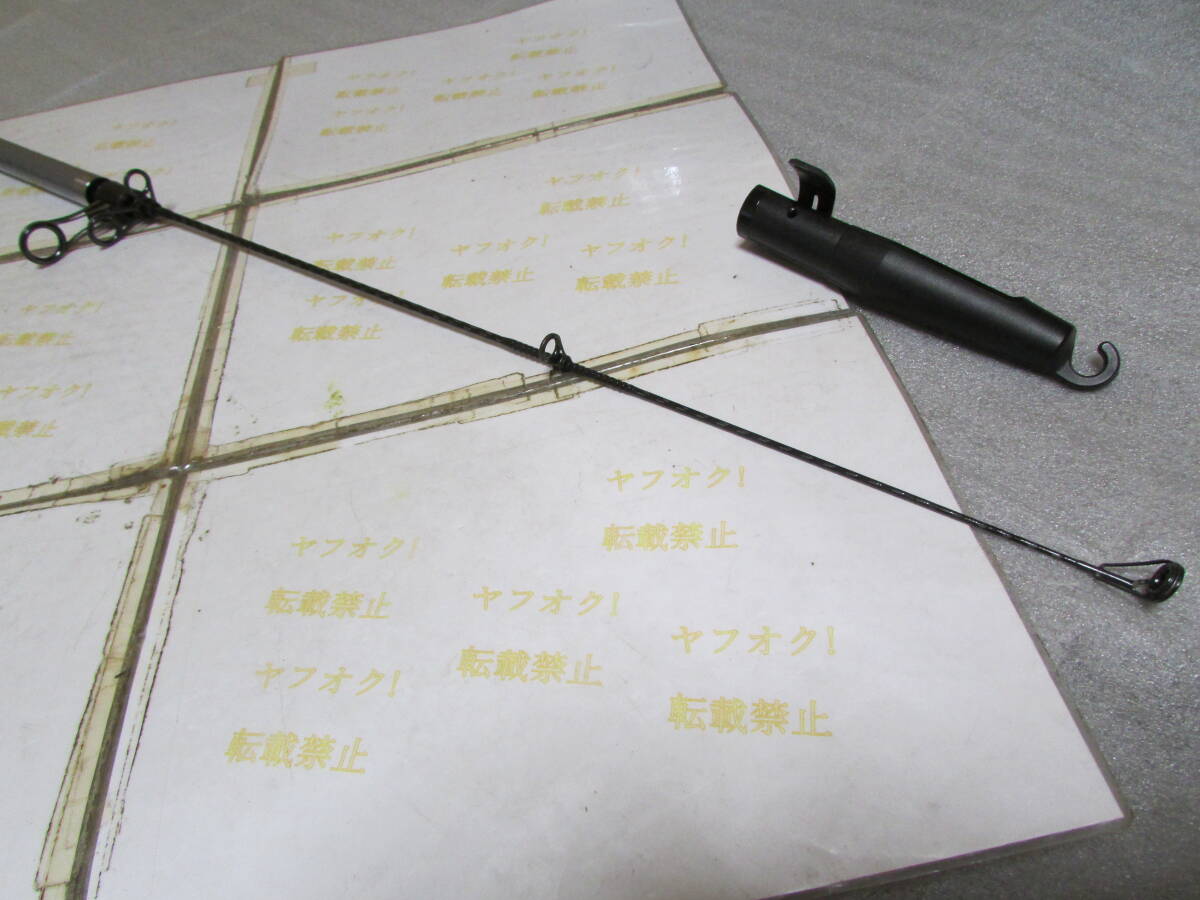 ヤフオク!
転載禁止
ヤフオク!
転載禁止
ヤフオク!
転載禁止
ヤフオク!
転載禁止
ヤフオク!
転載禁止
ヤフオク!
転載禁止
ヤフオク!
転載禁止
ヤフオク!
転載禁止
ヤフオク!
転載禁止
ヤフオク!
転載禁止
ヤフオク!
転載禁止
ヤフオク!
転載禁止
ヤフオク!
転載禁止
ヤフオク!
転載禁止
ヤフオク!
転載禁止
ヤフオク!
転載禁止
ヤフオク!
転載禁止
ヤフオク!
転載禁止